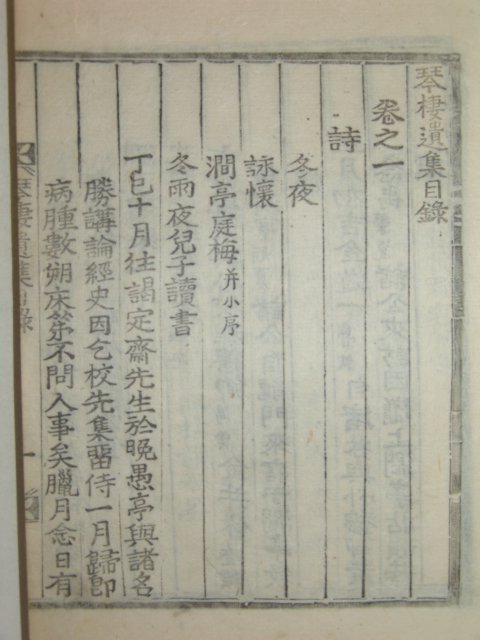 琴棲遺集目錄
卷之一
詩
冬夜
詠懷
澗亭庭梅 并小序
冬雨夜兒子讀書
丁巳十月往謁定齋先生於晩愚亭與諸名
勝講論經史因乞校先集留侍一月歸卽
病腫數朔床笫不問人事矣臘月念日有
琴棲遺集目錄 一